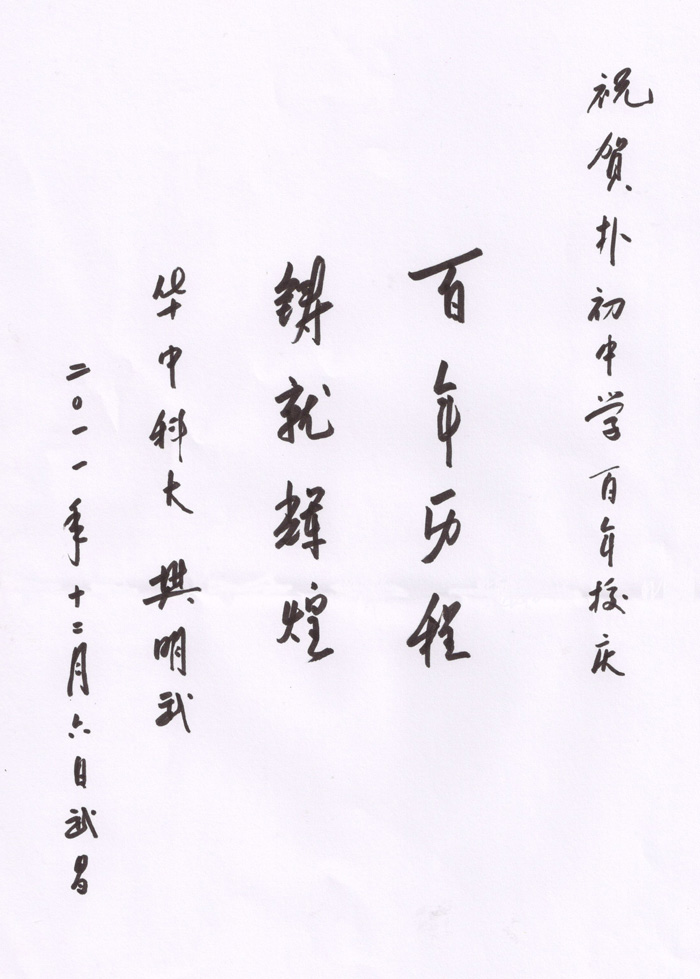 祝贺朴初中学百年校庆
百年历程
铸就辉煌
华中科大 樊明武
二〇一一年十二月六日武昌